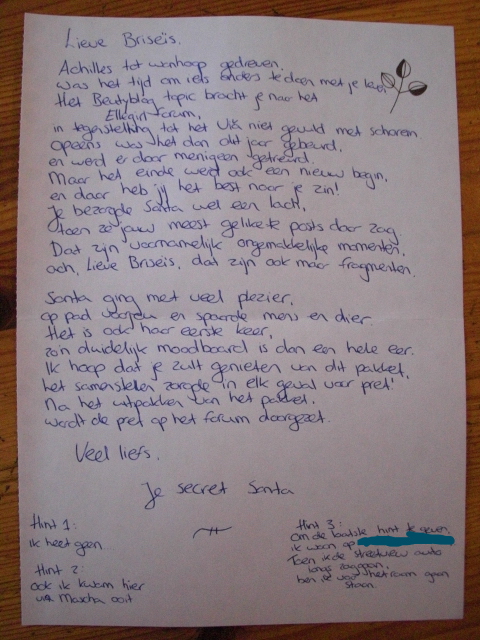 Lieve Briseïs.
Achilles tot wanhoop gedreven.
was het tijd om iets anders te doen met je leven
Het Beautyblog topic bracht je naar het
Ellegirl forum,
in tegenstelling tot het Viva niet gevuld met schoren
Opeens was het dan dit jaar gebeurd,
en werd er door menigeen getreurd.
Maar het einde werd ook een nieuw begin,
en daar heb jij het best naar je zin!
Je bezorgde Santa wel een lach,
toen ze jouw meest gelikete posts door zag.
Dat zijn voornamelijk ongemakkelijke momenten,
och, Lieve Briseïs, dat zijn ook maar fragmenten.
Santa ging met veel plezier,
op pad voor jou en spaarde mens en dier.
Het is ook haar eerste keer,
zo'n duidelijk moodboard is dan een hele eer.
Ik hoop dat je zult genieten van dit pakket,
het samenstellen zorgde in elk geval voor pret!
Na het uitpakken van het pakket.
wordt de pret op het forum doorgezet.
Veel liefs.
Je secret Santa
Hint 1:
ik heet geen
Hint 2:
ook ik kwam hier
via Mascha ooit
Hint 3:
Om de laatste hint te geven,
ik woon op
Toen ik de streetview auto
langs zag gaan,
ben ik voor het raam gaan
staan.